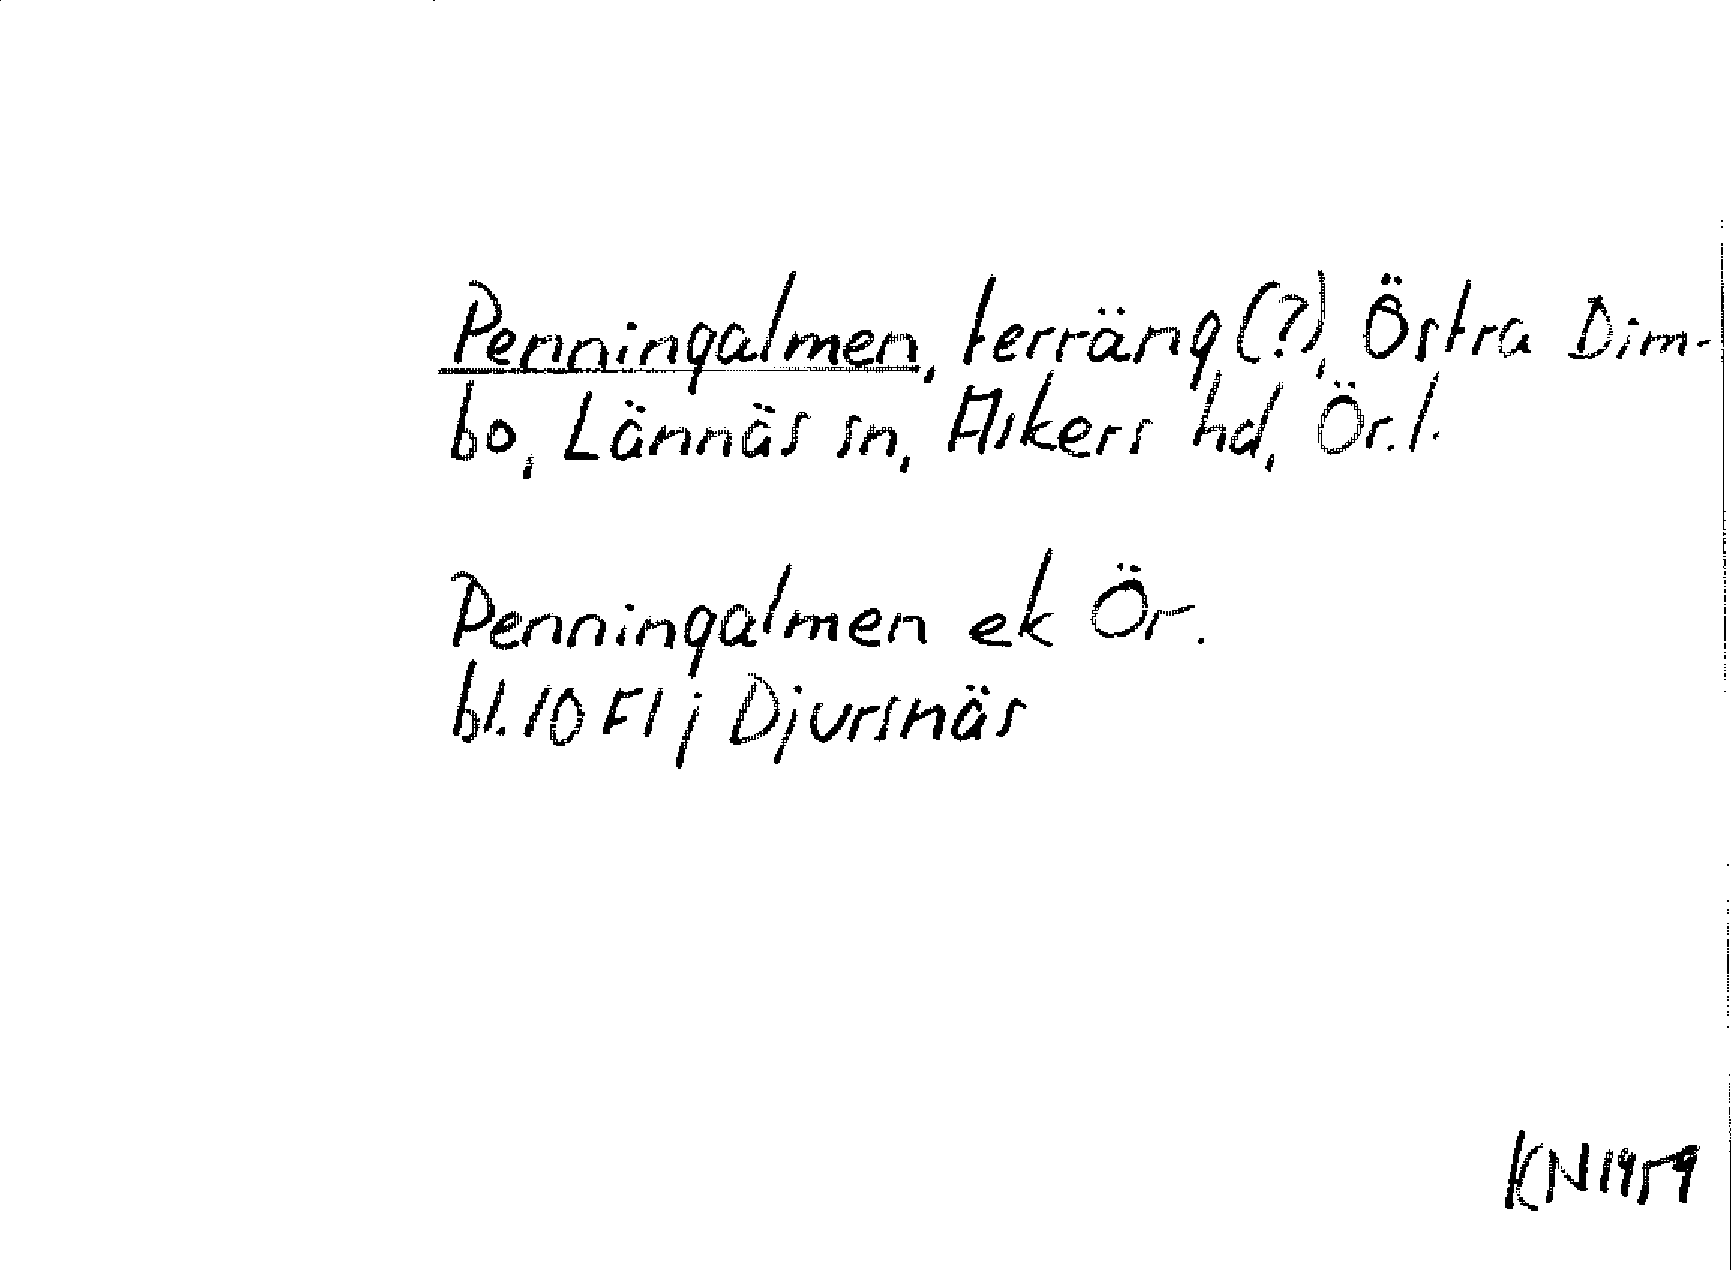 Penningalmen, terräng(?), Östra Dim-
bo, Lännäs sn, Askers hd, Ör. l.
Penningalmen ek Ör.
bl. 10 F1j Djursnäs
KN 1959